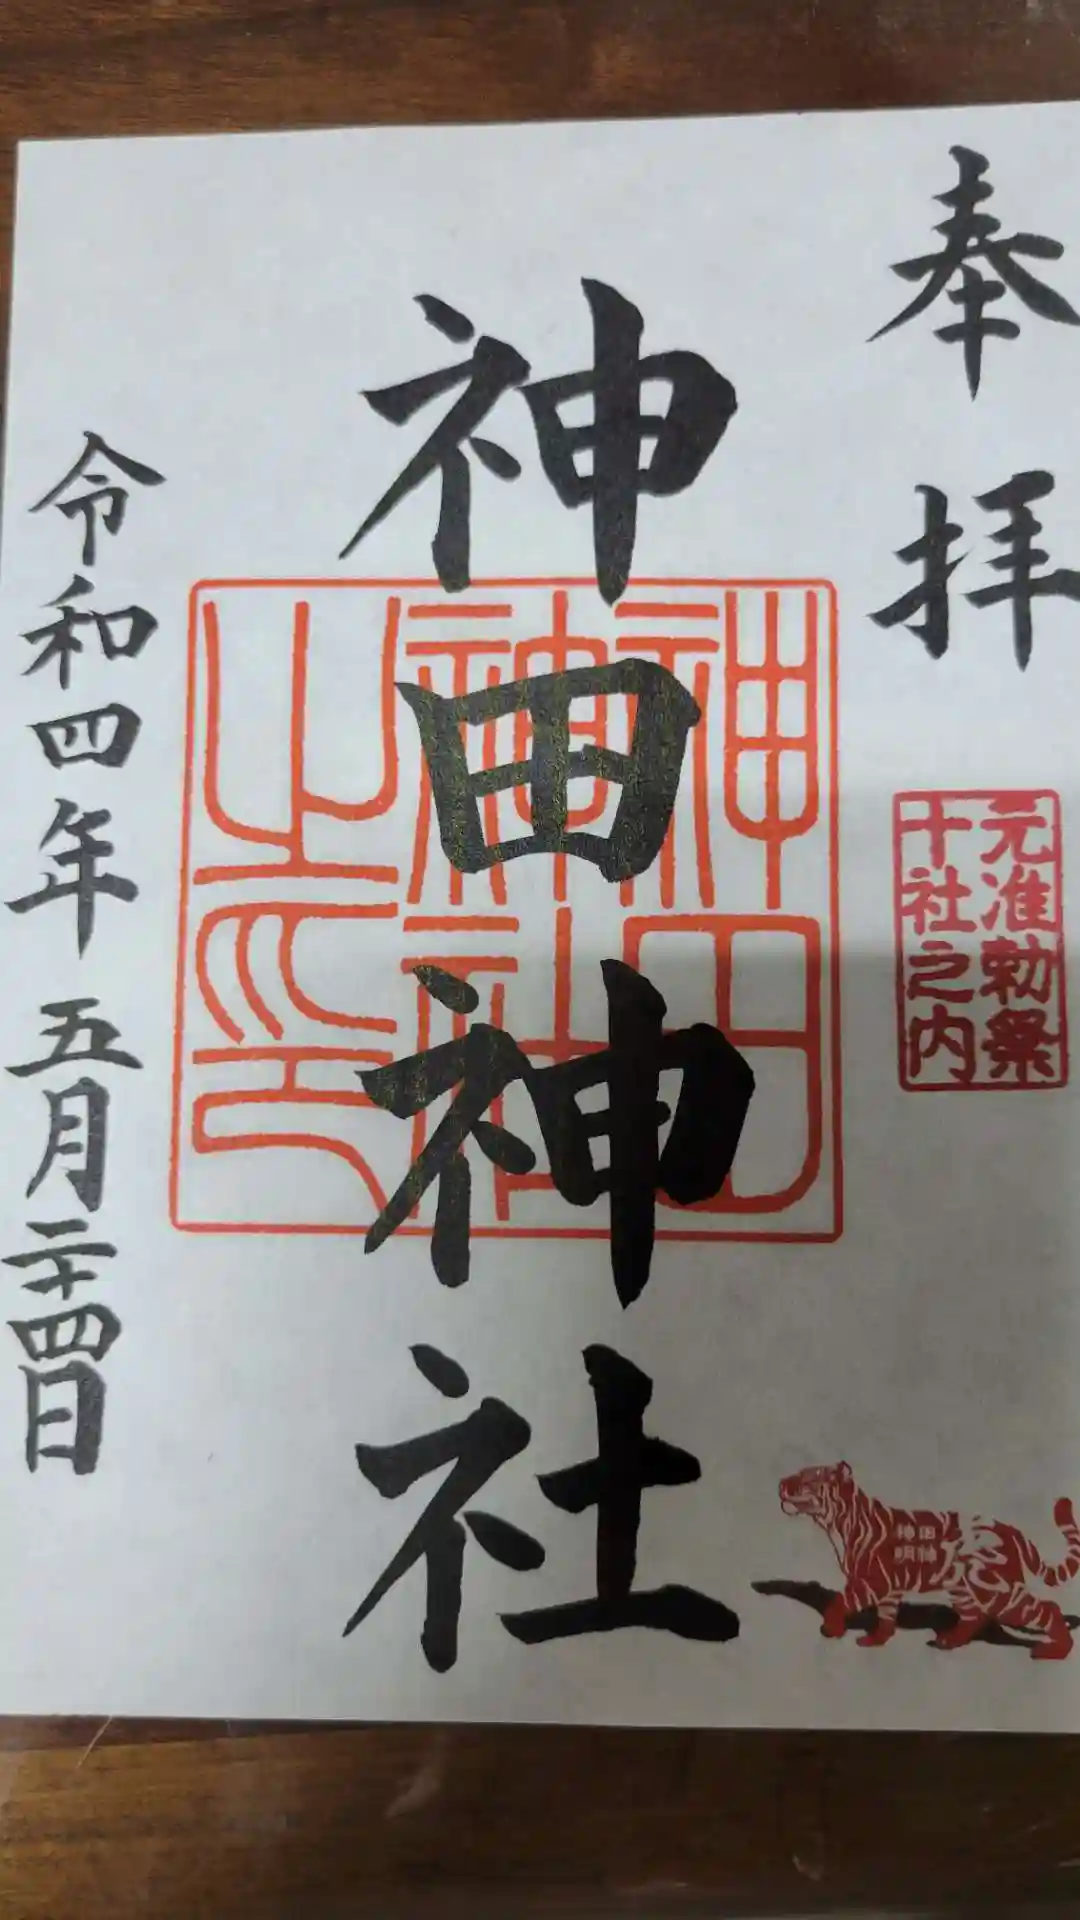 奉拝
元准勅祭
十社之内
神田神社
神田
神社
之印
田神
神明
虎
令和四年五月二十四日